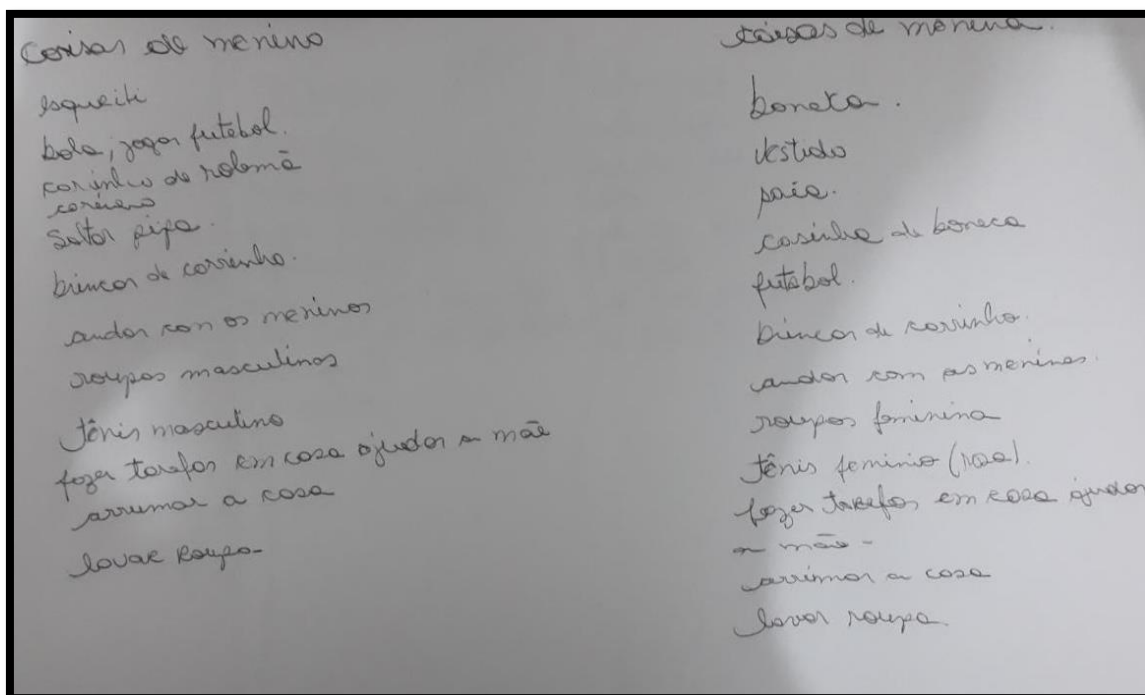 Coisas de menino
esqueiti
bola, jogar futebol.
carinho de rolemã
Soltar pipa.
brincar de carrinho.
andar con os meninos
roupas masculinas
tênis masculino
fazer tarefas em casa ajudar a mãe
arrumar a casa
lavar roupa-
coisas de menina.
boneca.
vestido
saia.
casinha de boneca
futebol.
brincar de carrinho.
andar com as meninas.
roupas feminina
tênis feminio (rosa).
fazer tarefas em casa ajudar
a mãe-
arrumar a casa
lavar roupa.